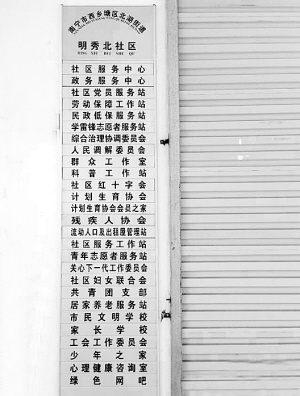 南宁市西乡塘区北湖街道
明秀北社区
MING XIU BEI SHE QU
社区服务中心
政务服务中心
社区党员服务站
劳动保障工作站
民政低保服务站
学雷锋志愿者服务站
综合治理协调委员会
人民调解委员会
群众工作室
科普工作站
社区红十字会
计划生育协会
计划生育协会会员之家
残疾人协会
流动人口及出租屋管理站
社区服务工作站
青年志愿者服务站
关心下一代工作委员会
社区妇女联合会
共青团支部
居家养老服务站
市民文明学校
家长学校
工会工作委员会
少年之家
心理健康咨询室
绿色网吧